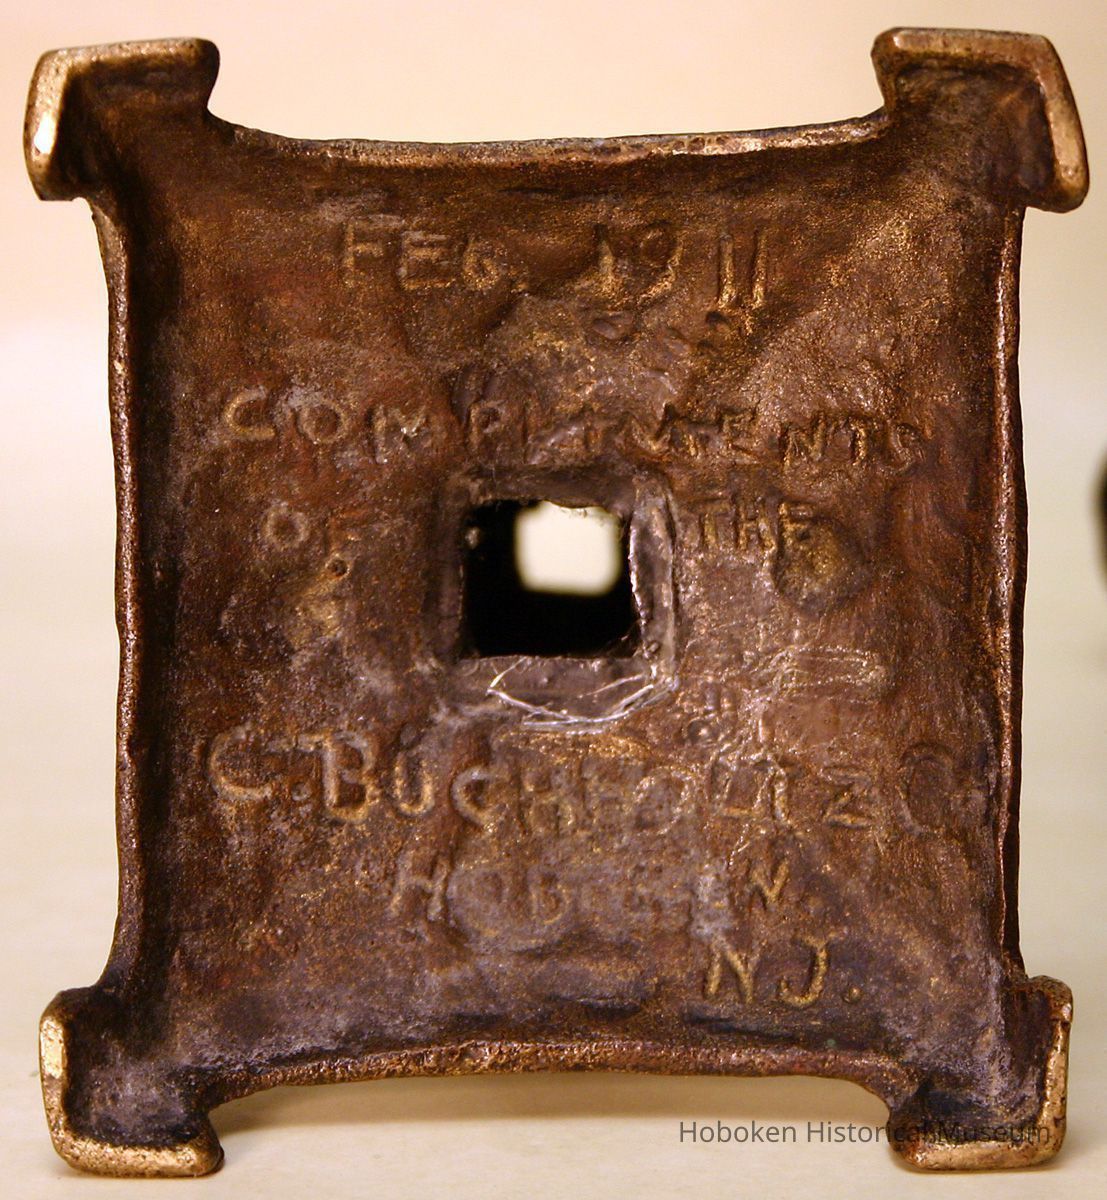 FEB. 1911
COMPLIMENTS
OF THE
C. BUCHHOLTZ C
HOBOKEN.
NJ.
Hoboken Historical Museum